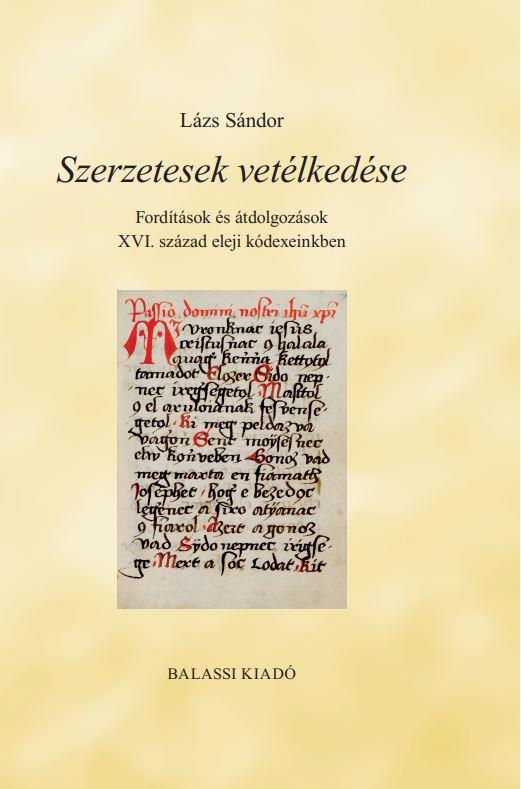 Lázs Sándor
Szerzetesek vetélkedése
Fordítások és átdolgozások
XVI. század eleji kódexeinkben
Passio domini nostri ihu xpi
Mi vronknac iesus
cristusnac halala
kettotol
tamadot Elozer Sido nep
nec iregsegetol Mastol
el arvloianak fesvense
getol ki meg peldazva
vagon Sent moysesnec
elw konveben Gonoz vad
meg marta en fiamath
Josephet hog e bezedoc
legenec a siro atyanac
fiarol Azert a gonoz
vad Sydo nepnec iregse
ge Mert a soc Lodat kit
BALASSI KIADÓ